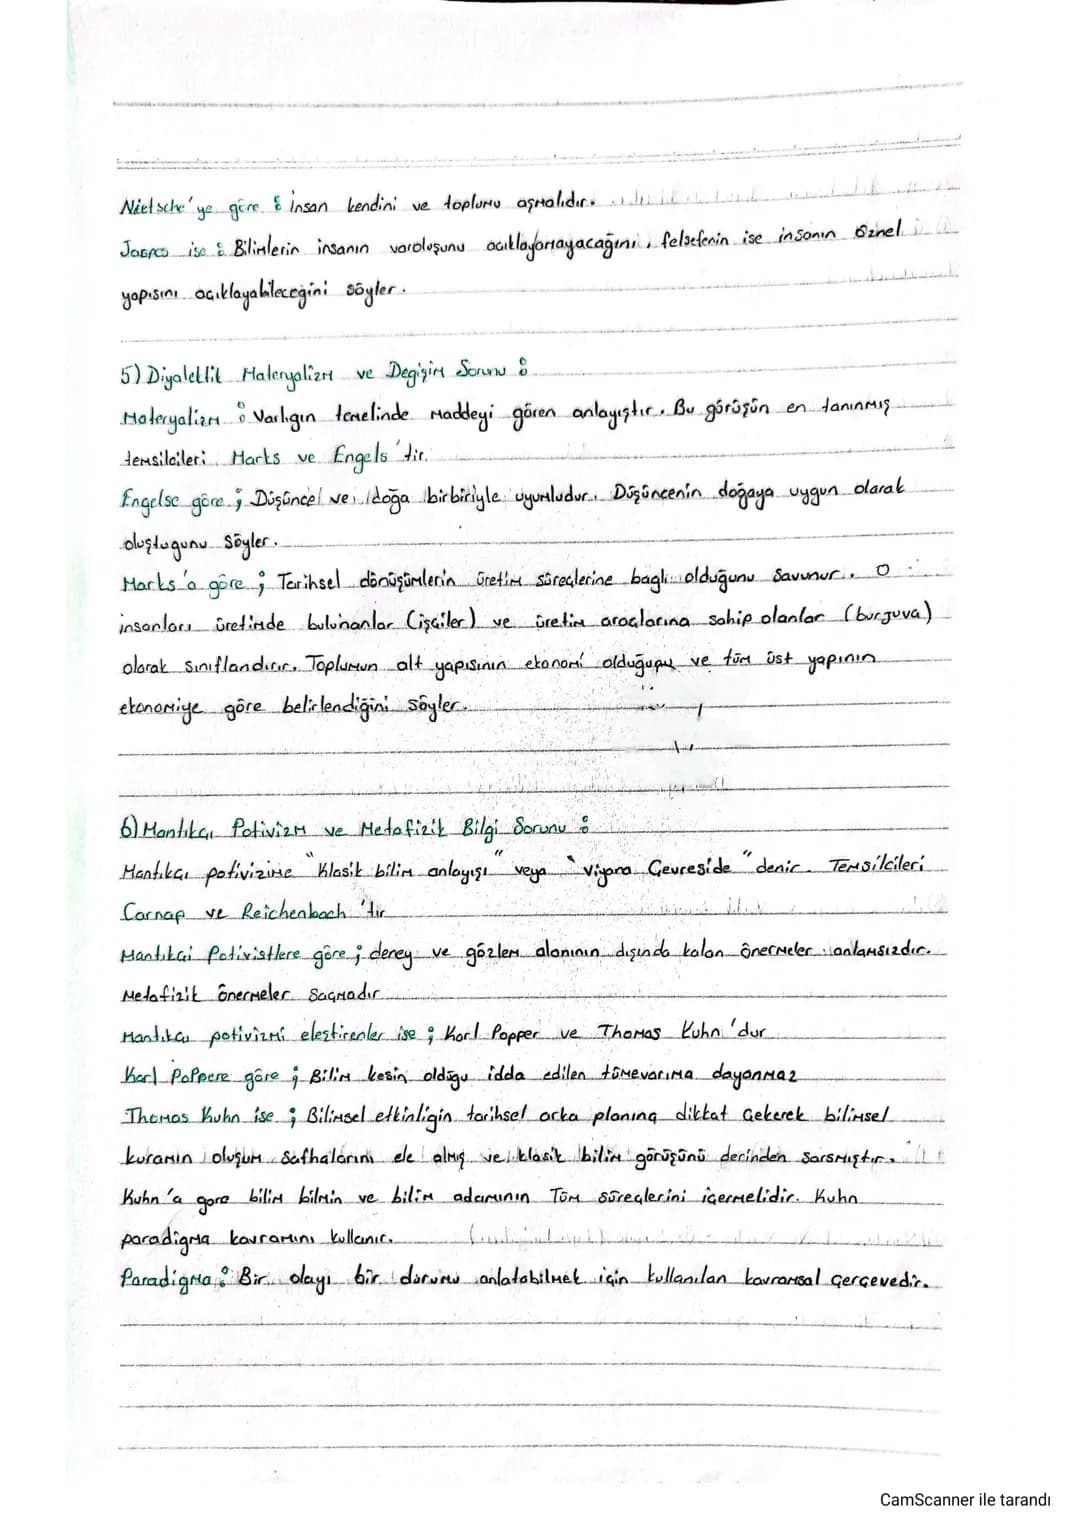 Nietsche'ye göre : İnsan kendini ve toplumu aşmalıdır.
Jaspes ise : Bilimlerin insanın varoluşunu açıklayamayacağını, felsefenin ise insanın öznel
yapısını açıklayabileceğini söyler.
5) Diyalektik Materyalizm ve Degişim Sorunu :
Materyalizm : Varlıgın temelinde maddeyi gören anlayıştır. Bu görüşün en tanınmış
temsilcileri Marks ve Engels'tir.
Engelse göre ; Düşünce ve doğa birbiriyle uyumludur. Düşüncenin doğaya uygun olarak
oluştugunu söyler.
Marks'a göre ; Tarihsel dönüşümlerin üretim süreçlerine baglı olduğunu savunur. O
insanları üretimde bulunanlar (işçiler) ve üretim araçlarına sahip olanlar (burjuva)
olarak sınıflandırır. Toplumun alt yapısının ekonomi olduğunu ve tüm üst yapının
ekonomiye göre belirlendiğini söyler.
6) Mantıkçı Potivizm ve Metafizik Bilgi Sorunu :
Mantıkçı potivizime "Klasik bilim anlayışı" veya "Viyana Çevreside" denir. Temsilcileri
Carnap ve Reichenbach'tır
Mantıkçi Potivistlere göre ; deney ve gözlem alanının dışında kalan önermeler anlamsızdır.
Metafizik önermeler saçmadır
Mantıkçı potivizmi eleştirenler ise ; Karl Popper ve Thomas Kuhn'dur
Karl Poppere göre ; Bilim kesin oldügu idda edilen tümevarıma dayanmaz
Thomas Kuhn ise ; Bilimsel etkinligin tarihsel arka planına dikkat çekerek bilimsel
kuramın oluşum safhalarını ele almış ve klasik bilim görüşünü derinden sarsmıştır.
Kuhn'a gore bilim bilmin ve bilim adamının Tüm süreçlerini içermelidir. Kuhn
paradigma kavramını kullanır.
Paradigma : Bir olayı bir durumu anlatabilmek için kullanılan kavramsal çerçevedir.
CamScanner ile tarandı